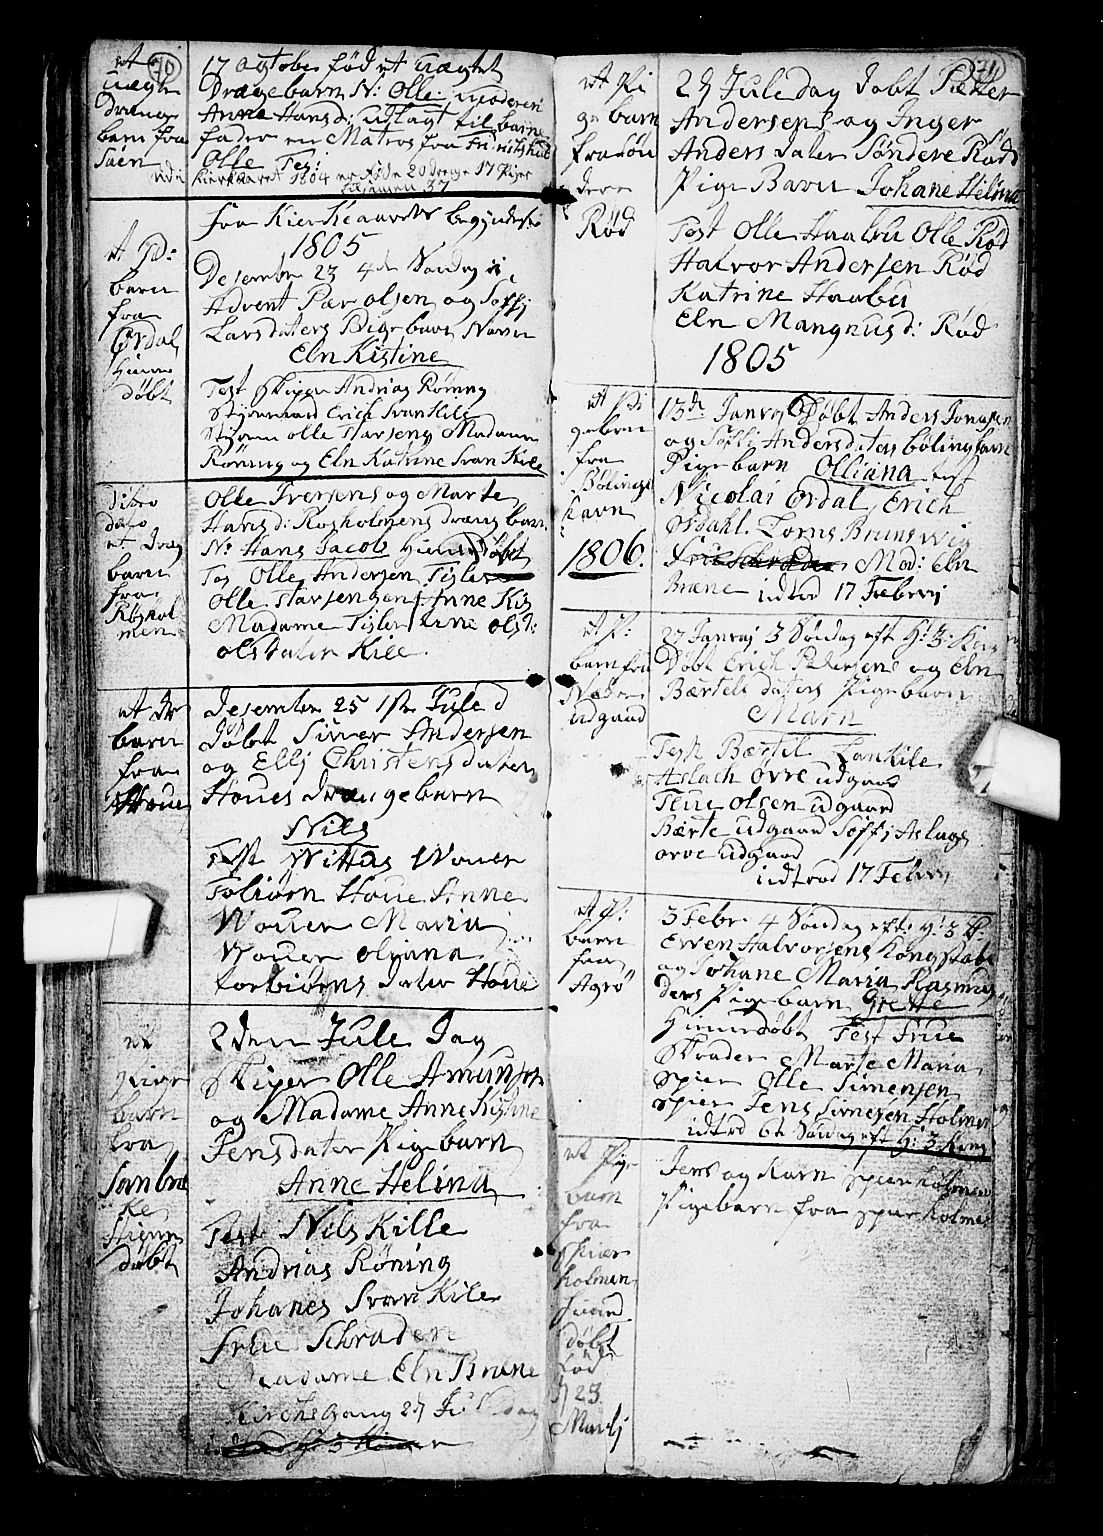 70
et
uægte
drænge
barn fra
Saen
17 ogtober fød et uægtet
Drægebarn N: Olle: moderen
Anne Hansd: udlagt til barne
fader en Matros fra
Olle Tesi
Kierkaaret 1804 er føde 20 drenge 17 Piger
tilsamen 37
et P:
barn
fra
Ordal
hieme
døbt
fra Kierkeaarets begyndelse
1805
Desember 23 4de Søndag i
Advent Pær olsen og Soffi
Larsdaters Pigebarn Navn
Eln Kistine
Test Skiper Andrias Røning
Styrmand Erich Svan Kile
Styrm olle Tarsens Madame
Røning og Eln Katrine Svan Kile
Ditto
dato
et dræg
barn
fra
Røshol
men
Olle Iversens og Marte
Hansd: Rosholmens dræng barn
N: Hans Jacob hiemedøbt
Tes Olle Andersen Tisler
Olle Tarjensen Anne Kis
Madame Tisler tine olsd:
olsdater Kile
et Dr
barn
fra
Houe
Desember 25 1ste Jule d
Døbt Siuer Andersen
og Ellj Christensdater
Houes drængebarn
Nils
Test Wittas Wouer
Toliørn Houe Anne
Wouer Maria
Wouer oliana
torbiørns dater Houe
et
Pige
barn
fra
Sombræ
ke
Hiem
døbt
2den Jule Dag
Skiper Olle Amunsen
og Madame Anne Kistine
Jensdater Pigebarn
Anne Helina
Test Nils Kille
Andrias Røning
Johanes Svan Kile
Frue Schrader
Madame Eln Bræne
Kirchegang 2den Juledag
71
et Pi
ge barn
fra søn
dere
Rød
2den Juledag Døbt Pætter
Andersens og Inger
Anders dater Søndere Rød
Pige Barn Johane Helina
Test Olle Haabu Olle Rød
Halvor Andersen Rød
Katrine Haabu
Eln Mangnusd: Rød
1805
et Pi
gebarn
fra
Bølings
havn
1806.
13de Janvrj Døbt Anders Jonasen
og Soffi Andersdaters bølingshavn
Pigebarn Olliana test
Nicolai Ordal Erich
Ordahl Lorns Brunswig
Mad: Eln
Bræne idtred 17 Febervj
et P:
barn fra
Nedre
udgaard
27 Janvaj 3 Søndag eft H: 3: King
Døbt Erich Petersens og Eln
Bærtels daters Pigebarn
Marn
Test Bærtil Lankile
Aslach Ovre udgaard
Tlue Olsen udgaard
Bærte udgaard Soffj Aslags
orve udgaard
idtred 17 Febvrj
et P:
barn
fra
Agrø
3 Febr. 4 Søndag eft: H: 3 K:
Ewen Halvorsens Kongshabn
og Johane Maria Rasmus
ders Pigebarn Grette
Hiemedøbt Test Frue
Skrader Marte Maria
Spier Olle Simensen
Spier Jens Simesen Holmen
idtred 6te Søndag eft H: 3 Kong
et Pige
barn
fra
Skier
holmen
døbt
død
d 23
Martj
Jens og Karn spierholmen
Pigebarn fra spierholmen